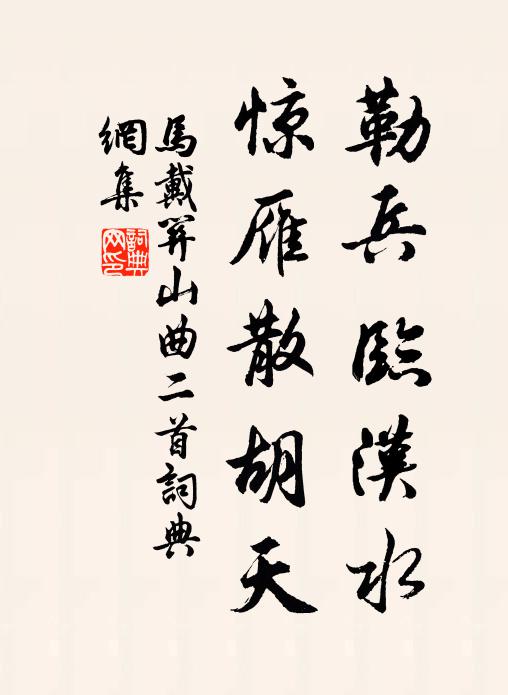 勒兵臨漢水
惊雁散胡天
馬戴關山曲二首詞典
網集
詞典
网印